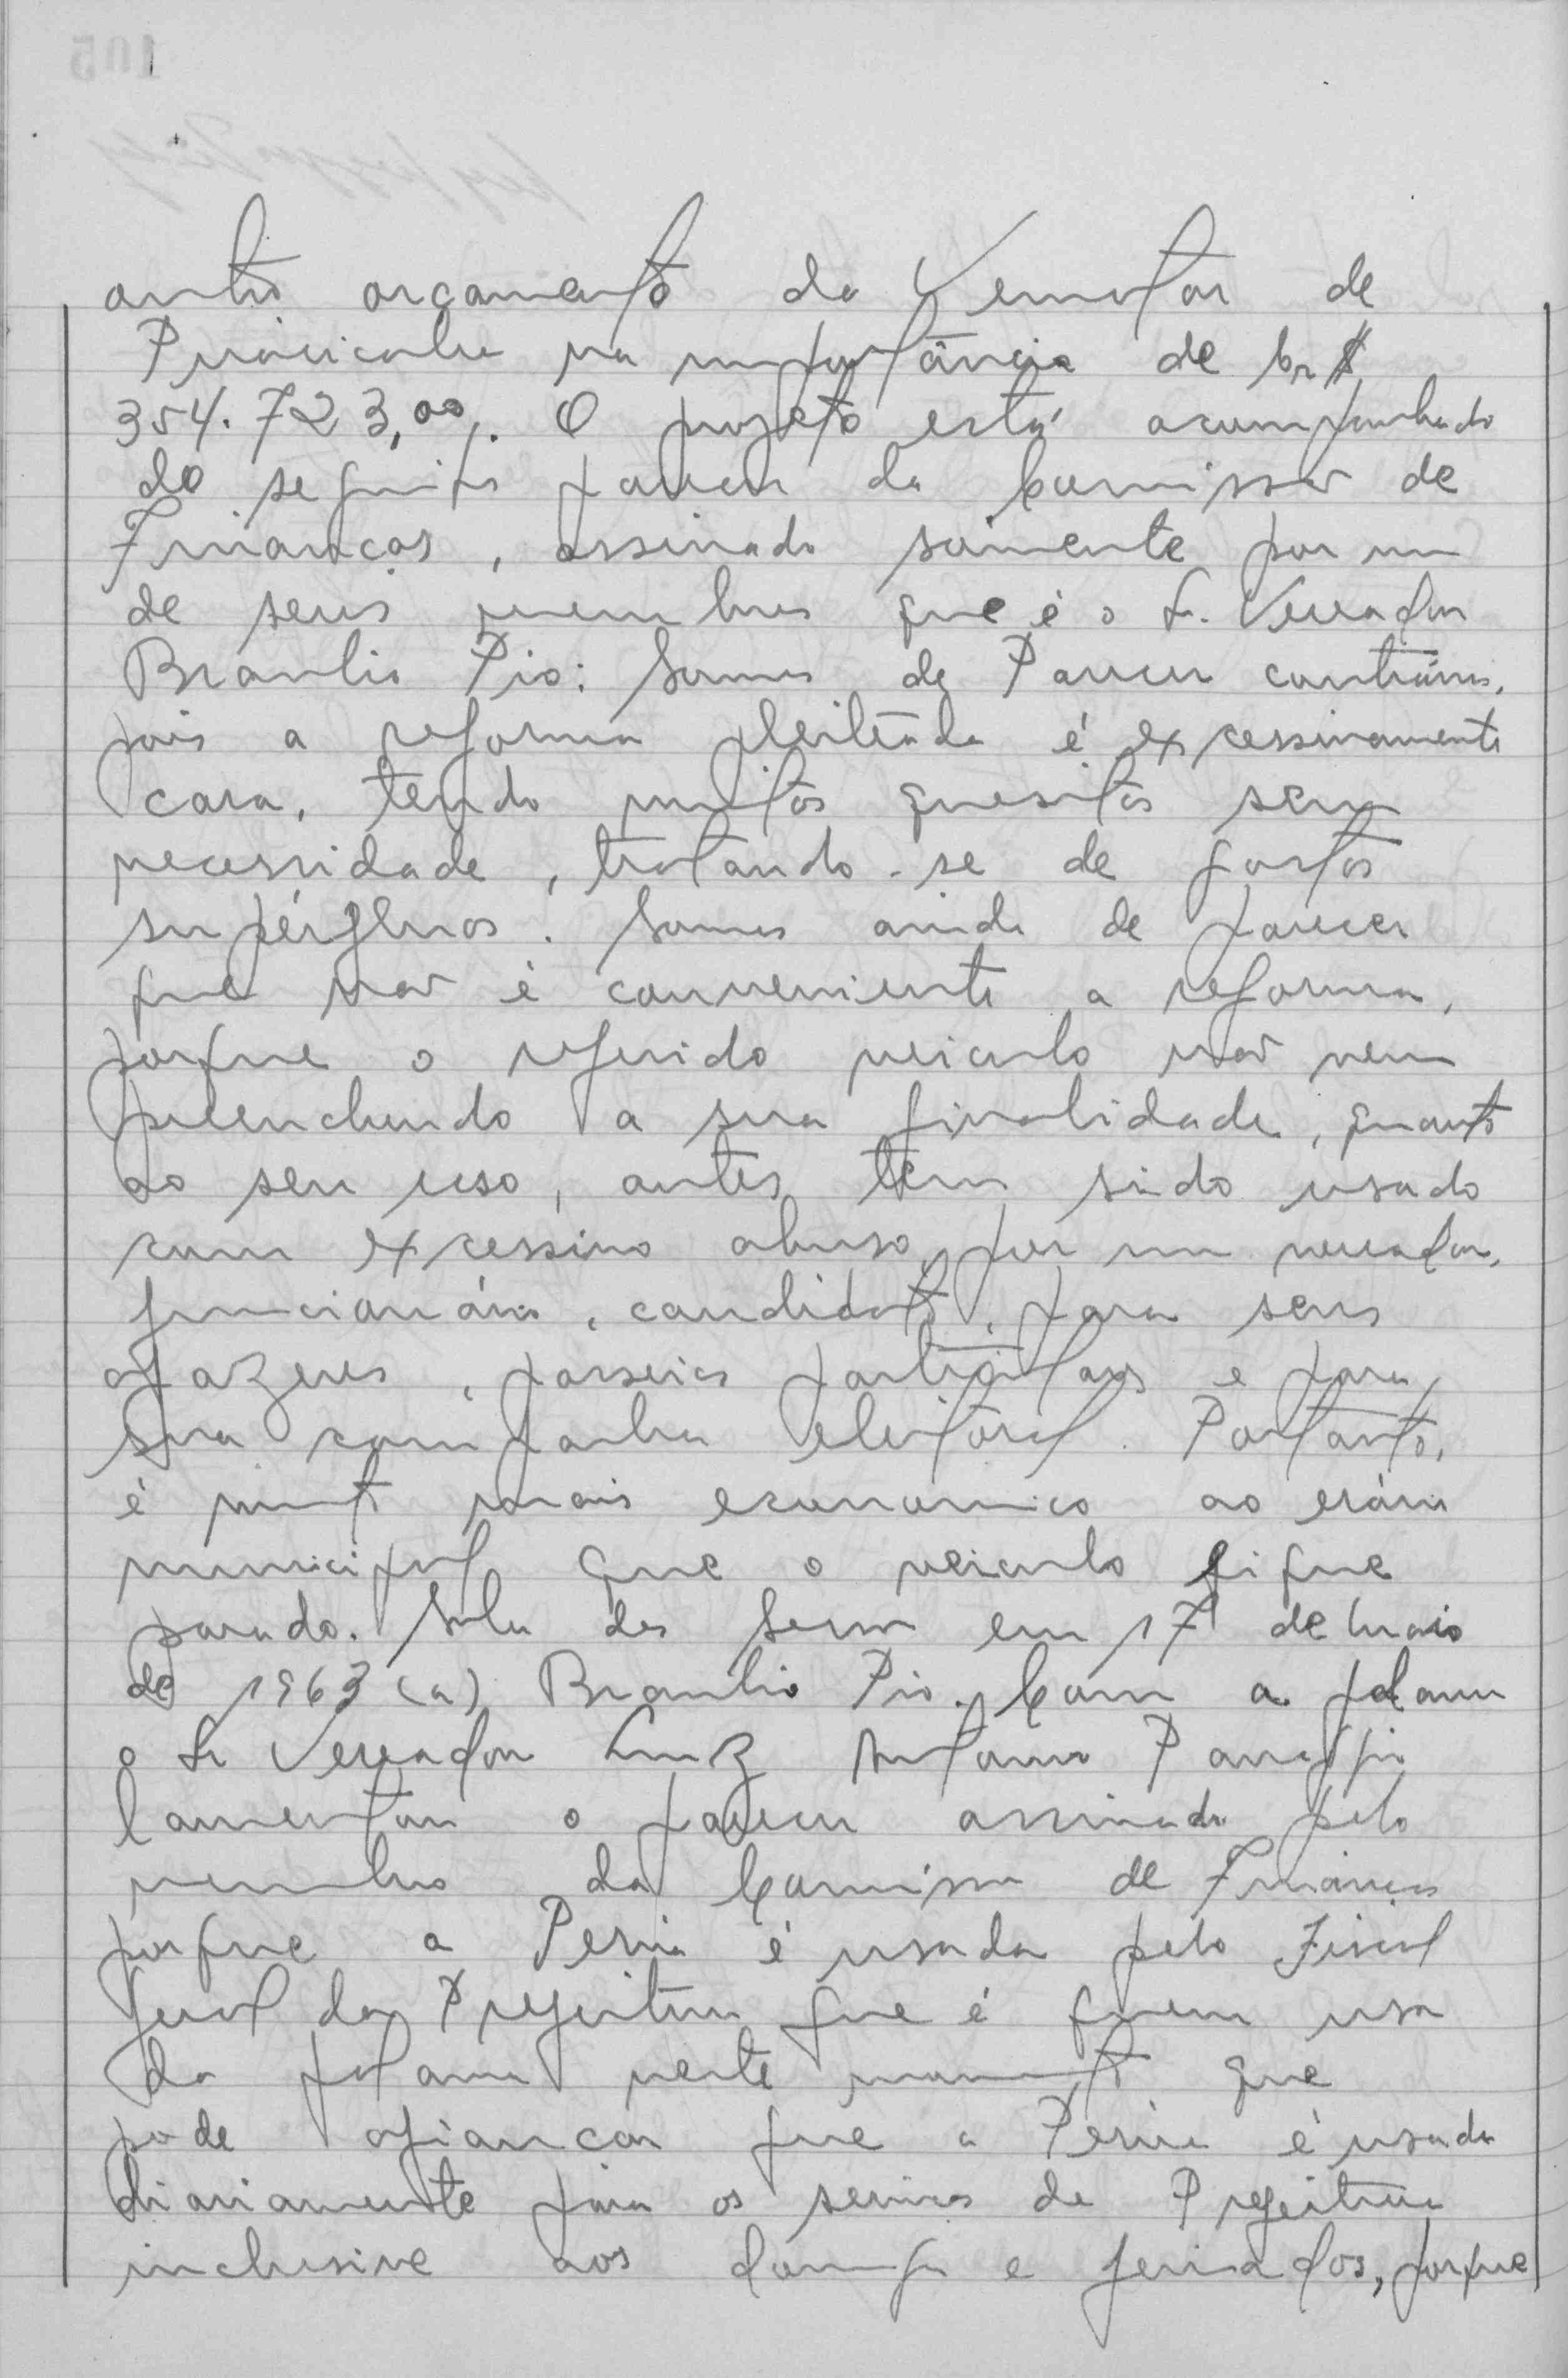 outro orçamento da Vemotor de
Piracicaba na importância de Cr$
354.723,00. O projeto está acompanhado
do seguinte parecer da Comissão de
Finanças, assinado sòmente por um
de seus membros que é o Sr. Vereador
Braulio Pio: Somos de Parecer contrário,
pois a reforma pleiteada é excessivamente
cara, tendo muitos quesitos sem
necessidade, tratando-se de gastos
supérfluos. Somos ainda de parecer
que não é conveniente a reforma,
porque o referido veiculo não vem
preenchendo a sua finalidade, quanto
ao seu uso, antes tem sido usado
com excessivo abuso, por um vereador,
funcionário, candidato, para seus
afazeres, passeios particulares e para
sua campanha eleitoral. Portanto,
é muito mais economico ao erário
municipal que o veiculo fique
parado. Sala das Sessões em 17 de maio
de 1963 (a) Braulio Pio. Com a palavra
o Sr Vereador Luiz Antonio Panuggio
lamentou o parecer assinado pelo
membro da Comissão de Finanças
porque a Perua é usada pelo Fiscal
Geral da Prefeitura que é quem usa
da palavra neste momento que
pode afiançar que a Perua é usada
diariamente para os serviços da Prefeitura
inclusive aos domingos e feriados, porque